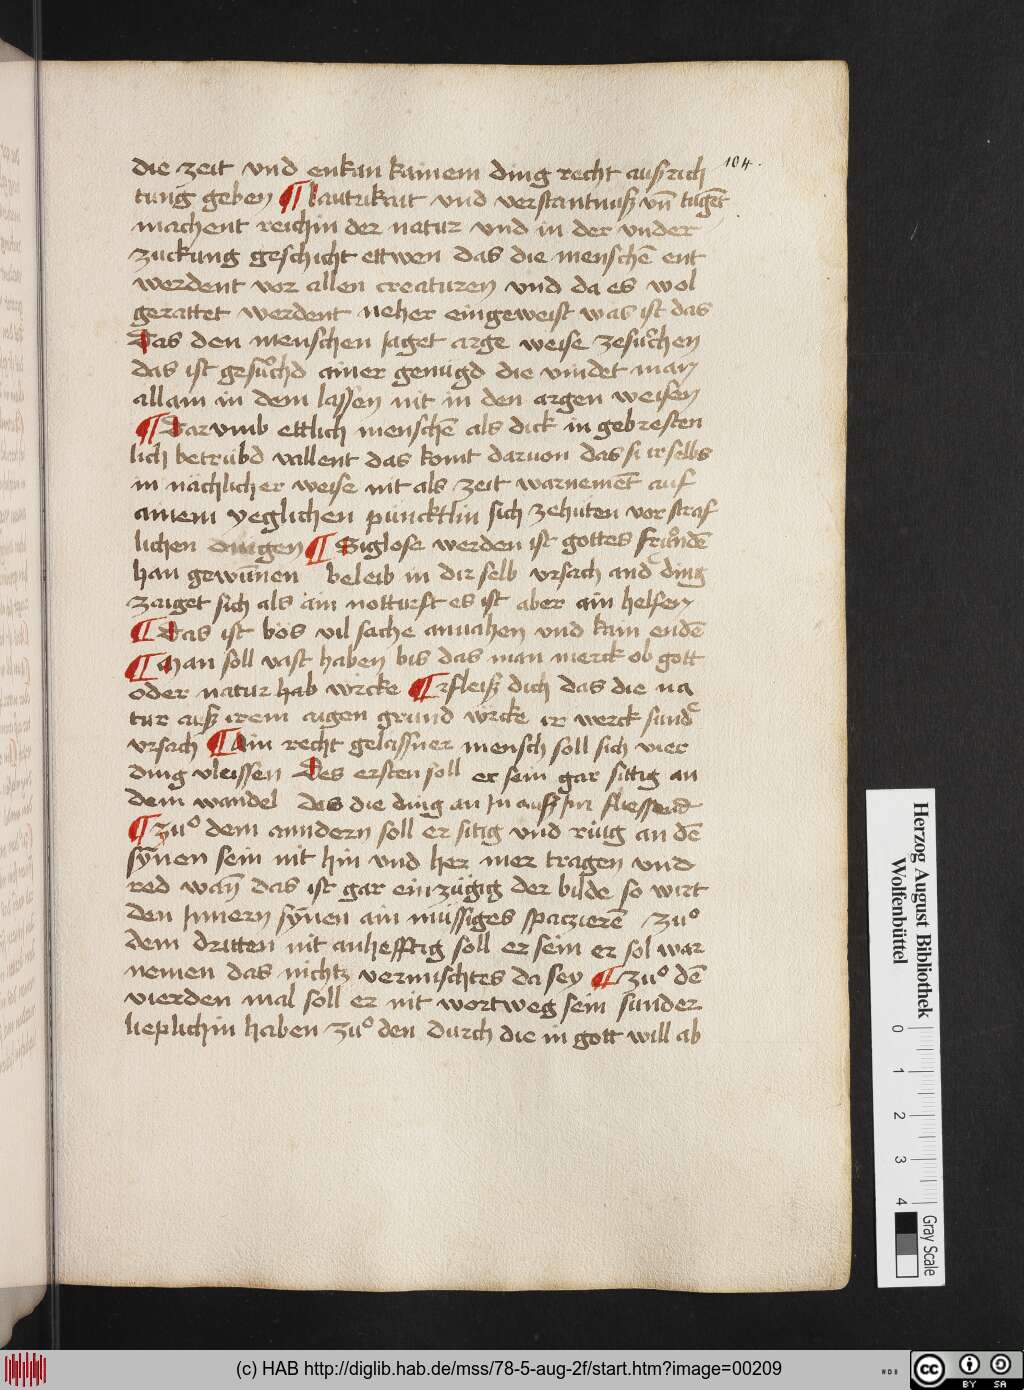 104.
die zeit vnd enkan kainem ding recht ausz rich
tung geben ¶ lautrikait vnd verstantnusz vn̄ tuge͞t
machent reichin der natur vnd in der vnder
zuckung geschicht ettwen das die menschē ent
werdent vor allen creaturen vnd da es wol
gerattet werdent neher eingeweist was ist das
Das den menschen jaget arge weise zesuͦchen
das ist gesuͦchd ainer genuͤgd die vindet man
allain in dem lassen nit in den argen weisen
¶ Darvmb ettlich menschē als dick in gebresten
lich betruͤbd vallent das komt daruon das si ir selbs
in nächlicher weise nit als zeit warneme͞t auf
ainem yeglichen puncktlin sich zehuͤten vor straf
lichen dingen ¶ Siglose werden ist gottes fruͤndē
han gewunnen beleib in dir selb vrsach andͤ ding
zaiget sich als ain notturft es ist aber ain helfen
¶ Das ist boͤs vil sache anuahen vnd kain endē
¶ Man soll vast haben bis das man merck ob gott
oder natur hab wircke ¶ Erfleisz dich das die na
tur ausz irem aigen grund wircke ir werck sundͤ
vrsach ¶ Ain recht gelassner mensch soll sich vier
ding vleissen Des ersten soll er sein gar sittig an
dem wandel das die ding an jn ausz jm fliessend
¶ Zuͦ dem anndern soll er sitig vnd ruͤig an dē
synnen sein nit hin vnd her mer tragen vnd
red wan̄ das ist gar einzuͤgig der bilde so wirt
den jnnern synnen ain muͤssiges spaczierē / zuͦ
dem dritten nit anhefftig soll er sein er sol war
nemen das nichtz vermischtes da sey ¶ Zuͦ dē
vierden mal soll er nit wortweg sein sunder
lieplichin haben zuͦ den durch die in gott will ab
Herzog August Bibliothek
Wolfenbüttel
0 1 2 3 4
Gray Scale
(c) HAB http://diglib.hab.de/mss/78-5-aug-2f/start.htm?image=00209
cc BY SA